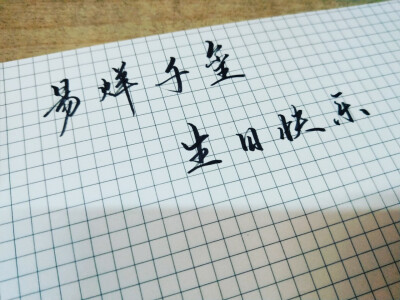 易烊千玺
生日快乐